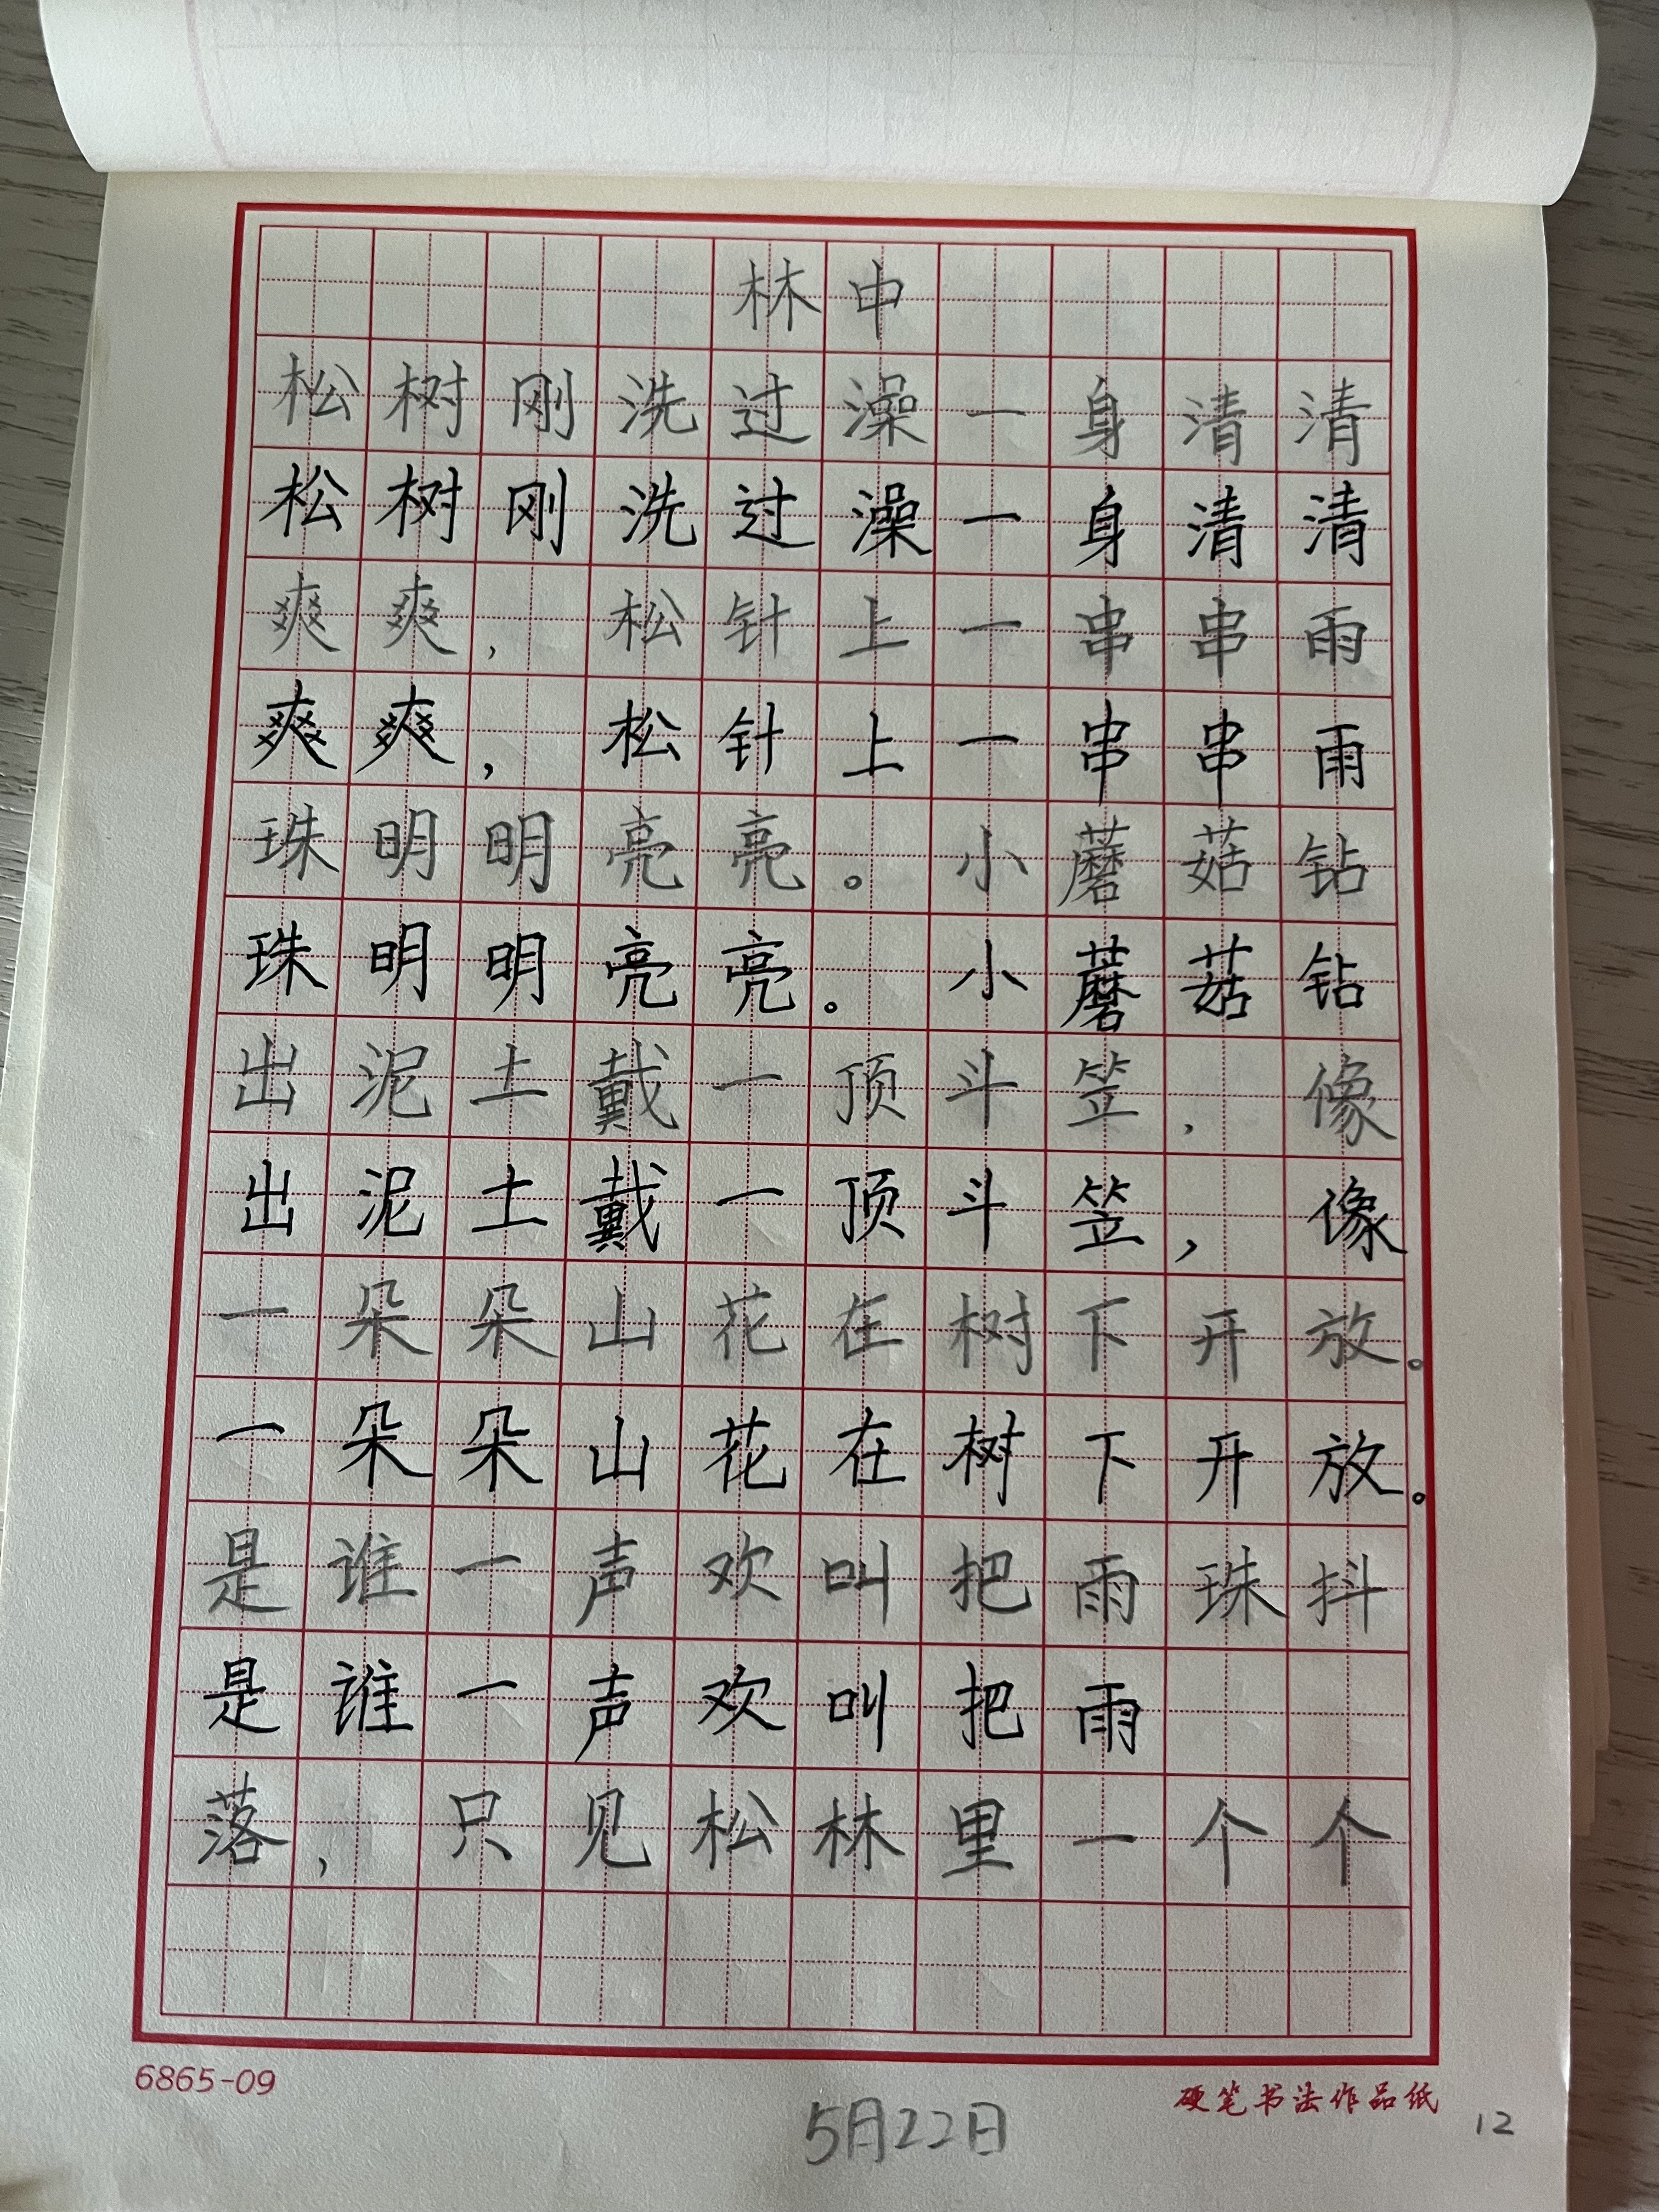 林中
松树刚洗过澡一身清清
松树刚洗过澡一身清清
爽爽，松针上一串串雨
爽爽，松针上一串串雨
珠明明亮亮。小蘑菇钻
珠明明亮亮。小蘑菇钻
出泥土戴一顶斗笠，像
出泥土戴一顶斗笠，像
一朵朵山花在树下开放。
一朵朵山花在树下开放。
是谁一声欢叫把雨珠抖
是谁一声欢叫把雨
落，只见松林里一个个
6865-09
硬笔书法作品纸
5月22日
12